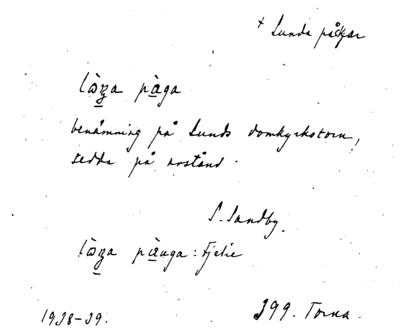 + Lunda pågar
lo̱ŋa pa̱ga
benämning på Lunds domkyrkotorn,
sedda på avstånd.
S. Sandby.
lo̱ŋa pa̱uga: Fjelie
1938-39. 399. Torna.